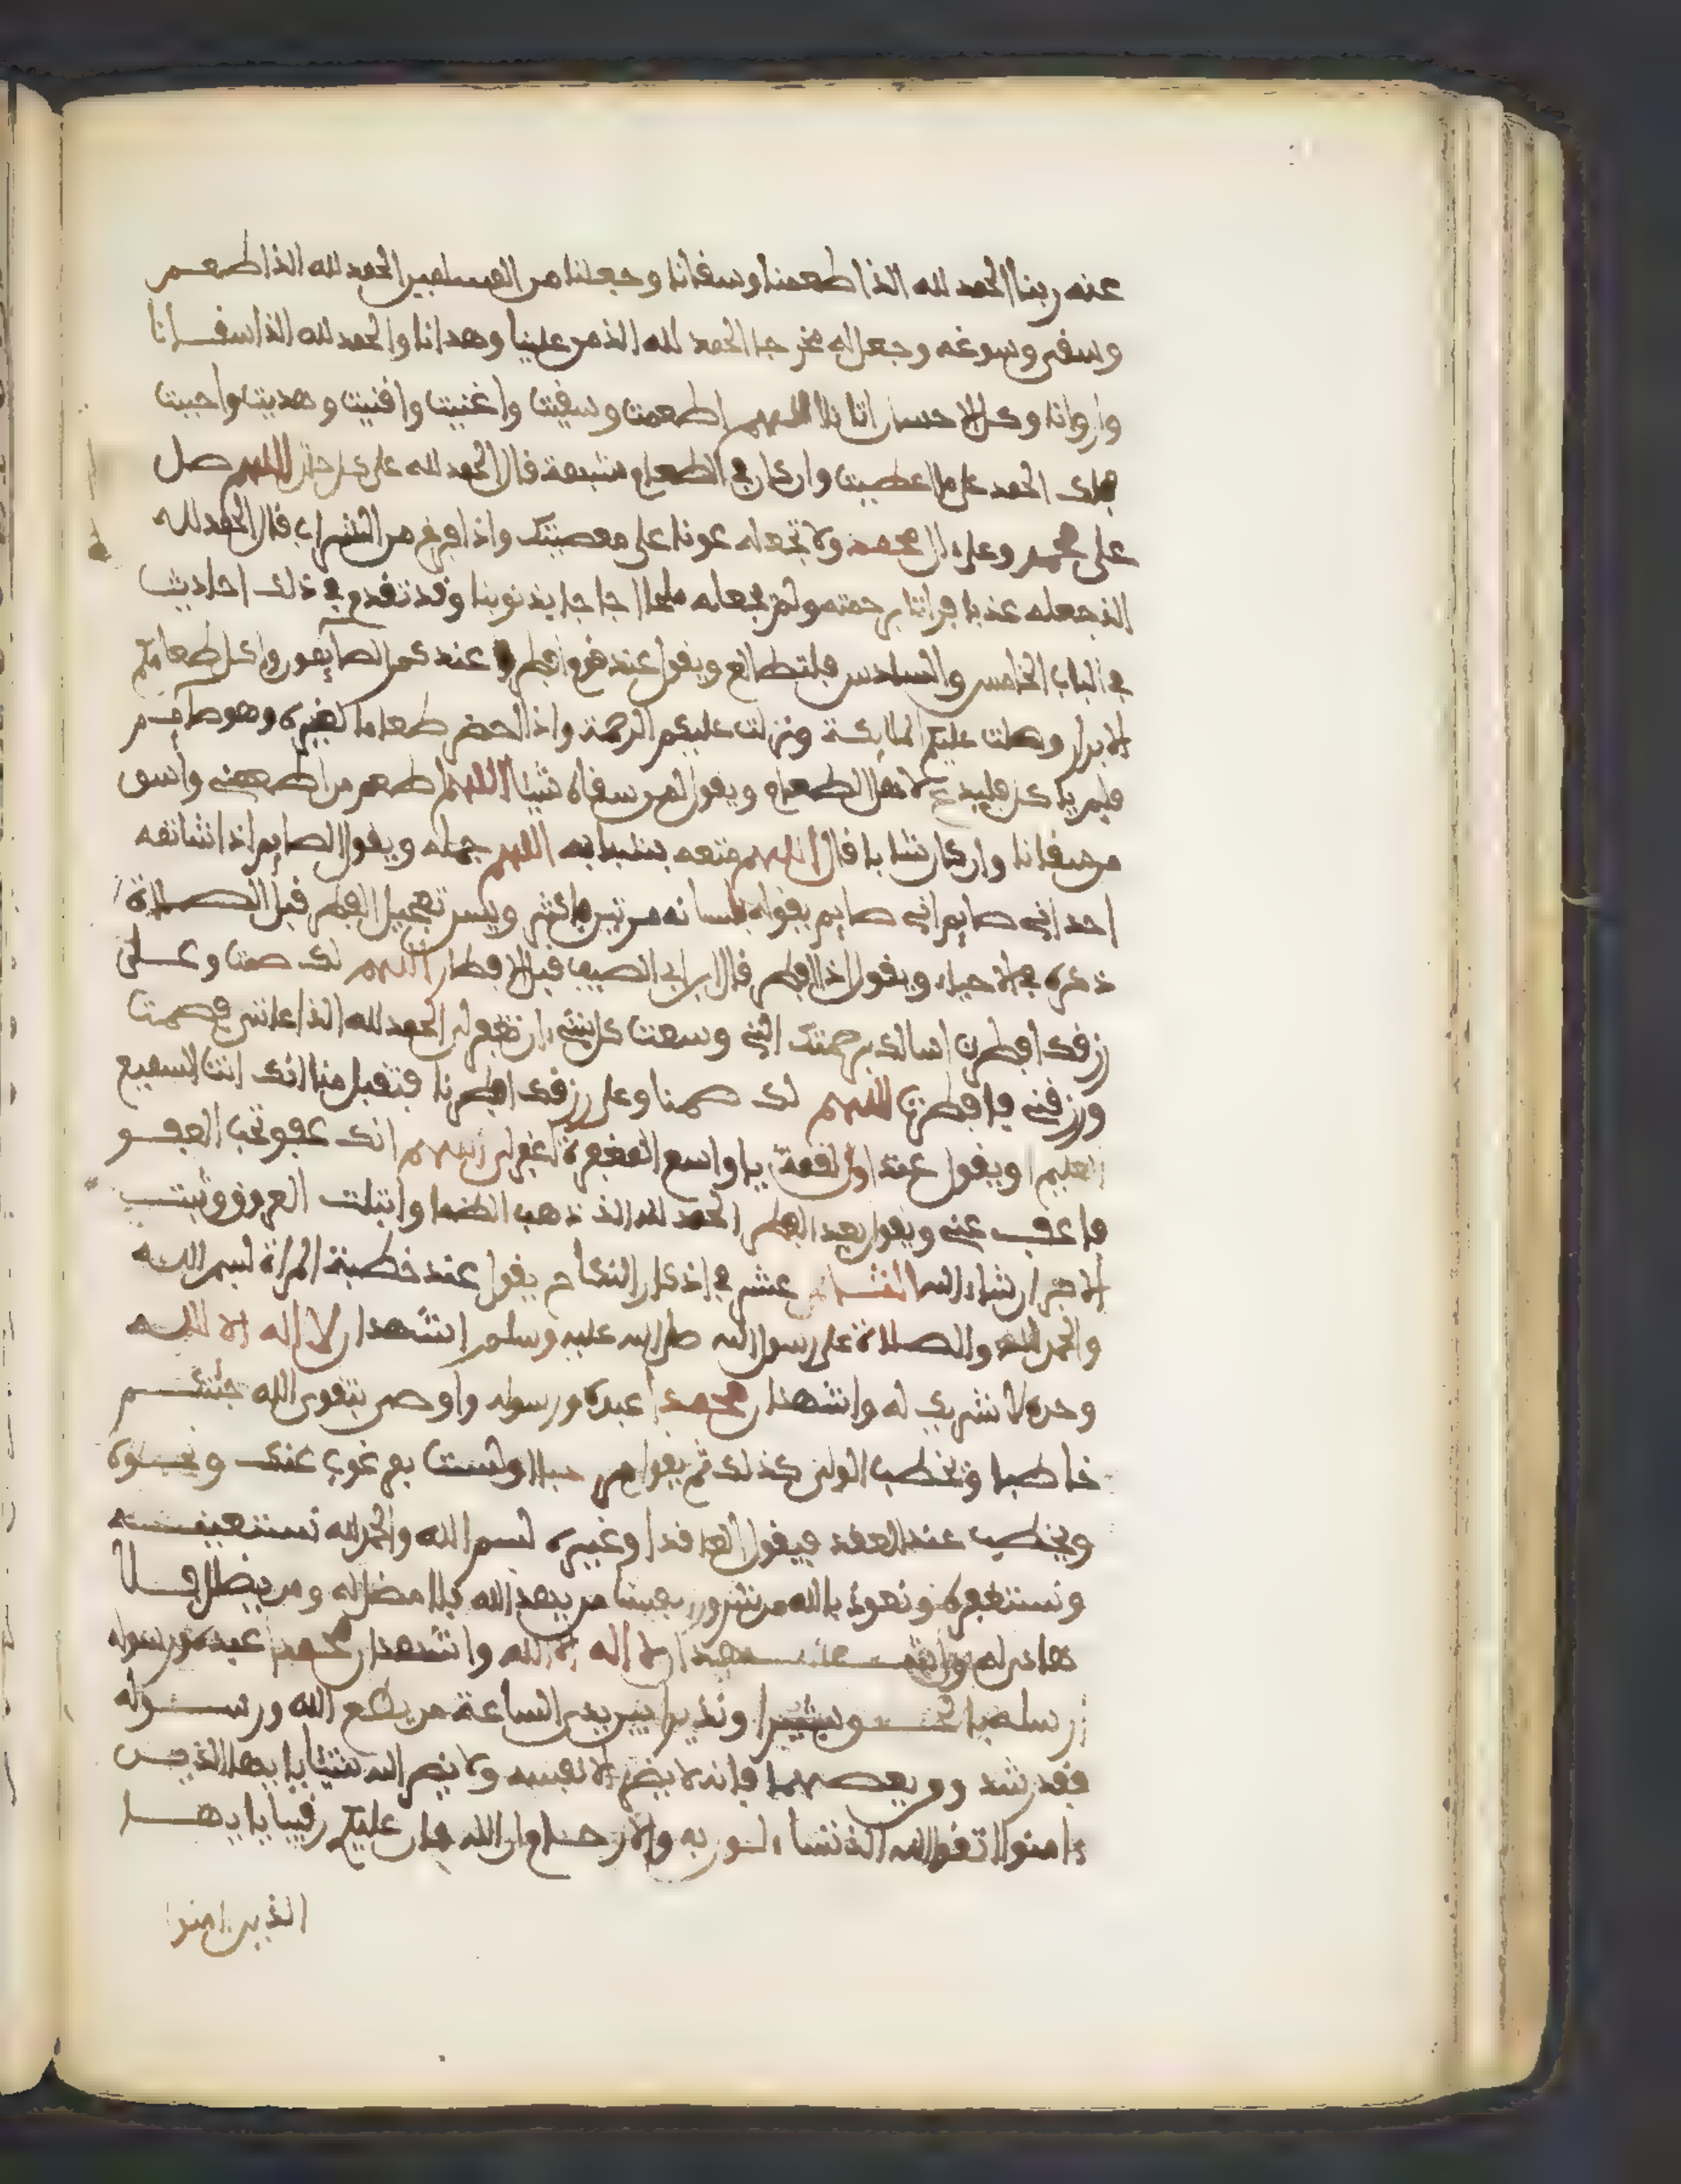 عنه ربنا الحمد لله الذي اطعمنا وسقانا وجعلنا من المسلمين الحمد لله الذي اطعم
وسقى وسوغه وجعل له مخرجا الحمد لله الذي من علينا وهدانا والحمد لله الذي اسقانا
واروانا وكل الاحسان اتانا اللهم اطعمت وسقيت واغنيت واقنيت وهديت واحييت
فلك الحمد على ما اعطيت وان كان في الطعام شبهة قال الحمد لله على كل حال اللهم صل
على محمد وعلى ال محمد ولا تجعله عونا على معصيتك واذا فرغ من الشراب قال الحمد لله
الذي جعله عذبا فراتا برحمته ولم يجعله ملحا اجاجا بذنوبنا وقد تقدم في ذلك احاديث
في الباب الخامس والسادس فلتطالع ويقول عند قوم افطر عندكم الصايمون واكل طعامكم
الابرار وصلت عليكم الملايكة ونزلت عليكم الرحمة واذا حضر طعاما لغيره وهو صايم
فلم ياكل فليدع لاهل الطعام ويقول لمن سقاه شيئا اللهم اطعم من اطعمني واسق
من سقانا وان كان شابا قال اللهم متعه بشبابه اللهم جمله ويقول الصايم اذا شاتمه
احد اني صايم اني صايم يقوله بلسانه مرتين فاكثر ويسن تعجيل الفطر قبل الصلاة
ذكره في الاحياء ويقول اذا افطر قال ابن ابي الصيف قبل الافطار اللهم لك صمت وعلى
رزقك افطرت اسالك برحمتك التي وسعت كل شيء ان تغفر لي الحمد لله الذي اعانني فصمت
ورزقني فافطرت اللهم لك صمنا وعلى رزقك افطرنا فتقبل منا انك انت السميع
العليم ويقول عند اول لقمة يا واسع المغفرة اغفر لي اللهم انك عفو تحب العفو
فاعف عني ويقول بعد الفطر الحمد لله الذي ذهب الظما وابتلت العروق وثبت
الاجر ان شاء الله عشر في اذكار النكاح يقول عند خطبة المراة بسم الله
والحمد لله والصلاة على رسول الله صلى الله عليه وسلم اشهد ان لا اله الا الله
وحده لا شريك له واشهد ان محمدا عبده ورسوله واوصي بتقوى الله جئتكم
خاطبا وتخطب الولي كذلك ثم يقول ولست بمرغوب عنك ونحوه
ويخطب عند العقد فيقول العاقد او غيره بسم الله والحمد لله نستعينه
ونستغفره ونعوذ بالله من شرور انفسنا من يهد الله فلا مضل له ومن يضلل فلا
هادي له واشهد ان لا اله الا الله واشهد ان محمدا عبده ورسوله
ارسله بالحق بشيرا ونذيرا بين يدي الساعة من يطع الله ورسوله
فقد رشد ومن يعصهما فانه لا يضر الا نفسه ولا يضر الله شيئا يا ايها الذين
ءامنوا اتقوا الله الذي تساءلون به والارحام ان الله كان عليكم رقيبا يا ايها
الذين امنوا